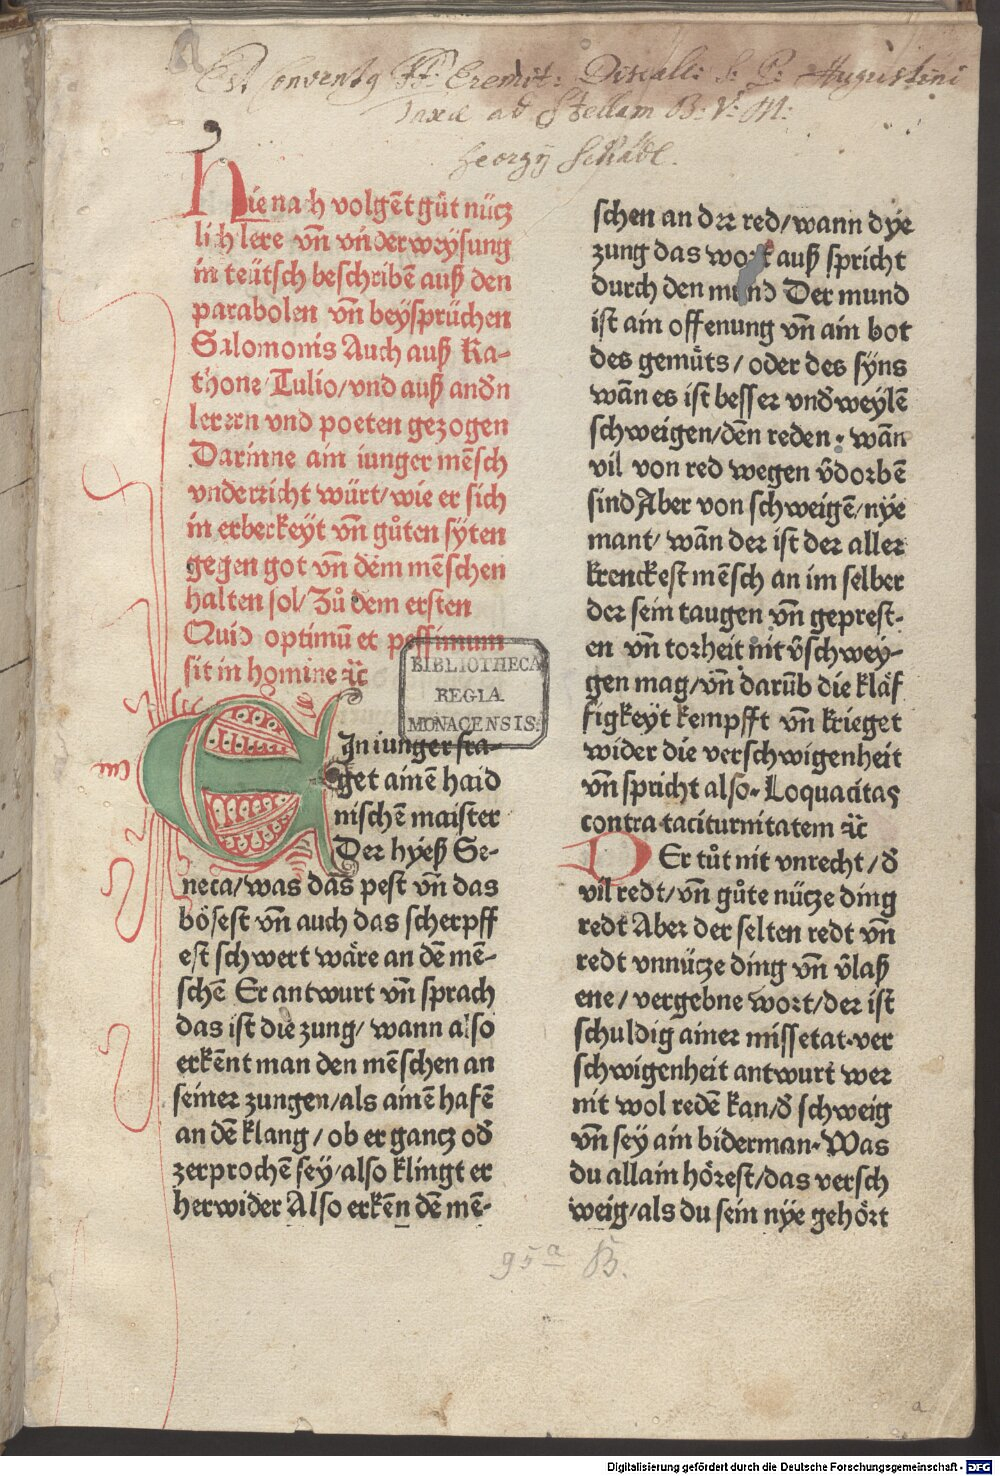 Est Conventg FF. Eremit: Discalc: S: P: Augustini
Taxæ ad Stellam B: V: M:
Georgij Schädl.
Hie nach volgēt gůt nücz
lich lere vñ vnderweÿsung
in teütsch beschribē auß den
parabolen vñ beÿsprüchen
Salomonis Auch auß Ka-
thone/Tulio/vnd auß andn̄
lerern vnd poeten gezogen
Darinne ain iunger mēsch
vnderricht würt/wie er sich
in erberkeÿt vñ gůten sÿten
gegen got vñ dem mēschen
halten sol/Zů dem ersten
Quid optimū et pessimum
sit in homine ⁊c̄
EIn iunger fra-
get ainē haid
nischē maister
Der hÿeß Se-
neca/was das pest vñ das
bősest vñ auch das scherpff
est schwert wäre an dē mē-
schē Er antwurt vñ sprach
das ist die zung/wann also
erkēnt man den mēschen an
seiner zungen/als ainē hafē
an dē klang/ob er gancz od̄
zerprochē sey/also klingt er
herwider Also erkēn dē mē-
schen an der red/wann dÿe
zung das wort auß spricht
durch den mund Der mund
ist ain offenung vñ ain bot
des gemüts/oder des sÿns
wān es ist besser vnd̄weÿlē
schweigen/dēn reden. wān
vil von red wegen v̄dorbē
sind Aber von schweigē/nÿe
mant/wān der ist der aller
krenckest mēsch an im selber
der sein taugen vñ geprest-
en vñ torheit nit v̄schwey-
gen mag/vñ darūb die kläf
figkeÿt kempfft vñ krieget
wider die verschwigenheit
vñ spricht also. Loquacitas
contra taciturnitatem ⁊c̄
DEr tůt nit vnrecht/d̄
vil redt/vñ gůte nücze ding
redt Aber der selten redt vñ
redt vnnücze ding vñ v̄laß
ene/vergebne wort/der ist
schuldig ainer missetat.ver
schwigenheit antwurt wer
nit wol redē kan/d̄ schweig
vñ sey ain biderman. Was
du allain hőrest/das versch
weig/als du sein nÿe gehőrt
BIBLIOTHECA
REGIA
MONACENSIS.
95 a B.
a
Digitalisierung gefördert durch die Deutsche Forschungsgemeinschaft - DFG